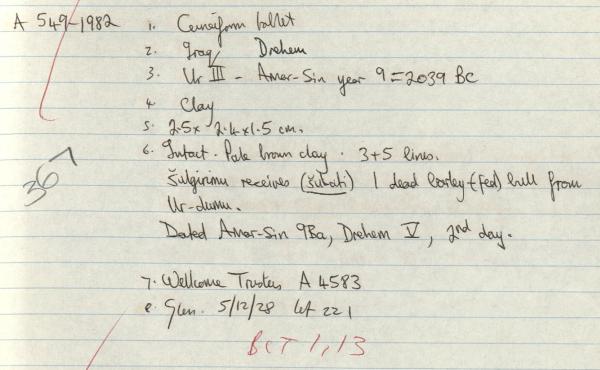 A 549-1982
1. Cuneiform tablet
2. Iraq Drehem
3. Ur III - Amar-Sin year 9 = 2039 BC
4. Clay
5. 2.5 x 2.4 x 1.5 cm.
6. Intact. Pale brown clay. 3+5 lines.
Šulgirimu receives (šubati) 1 dead barley-(fed) bull from
Ur-dumu.
Dated Amar-Sin 9Ba, Drehem V, 2nd day.
367
7. Wellcome Trustees A 4583
8. 5/12/28 Lot 221
BCT 1, 13